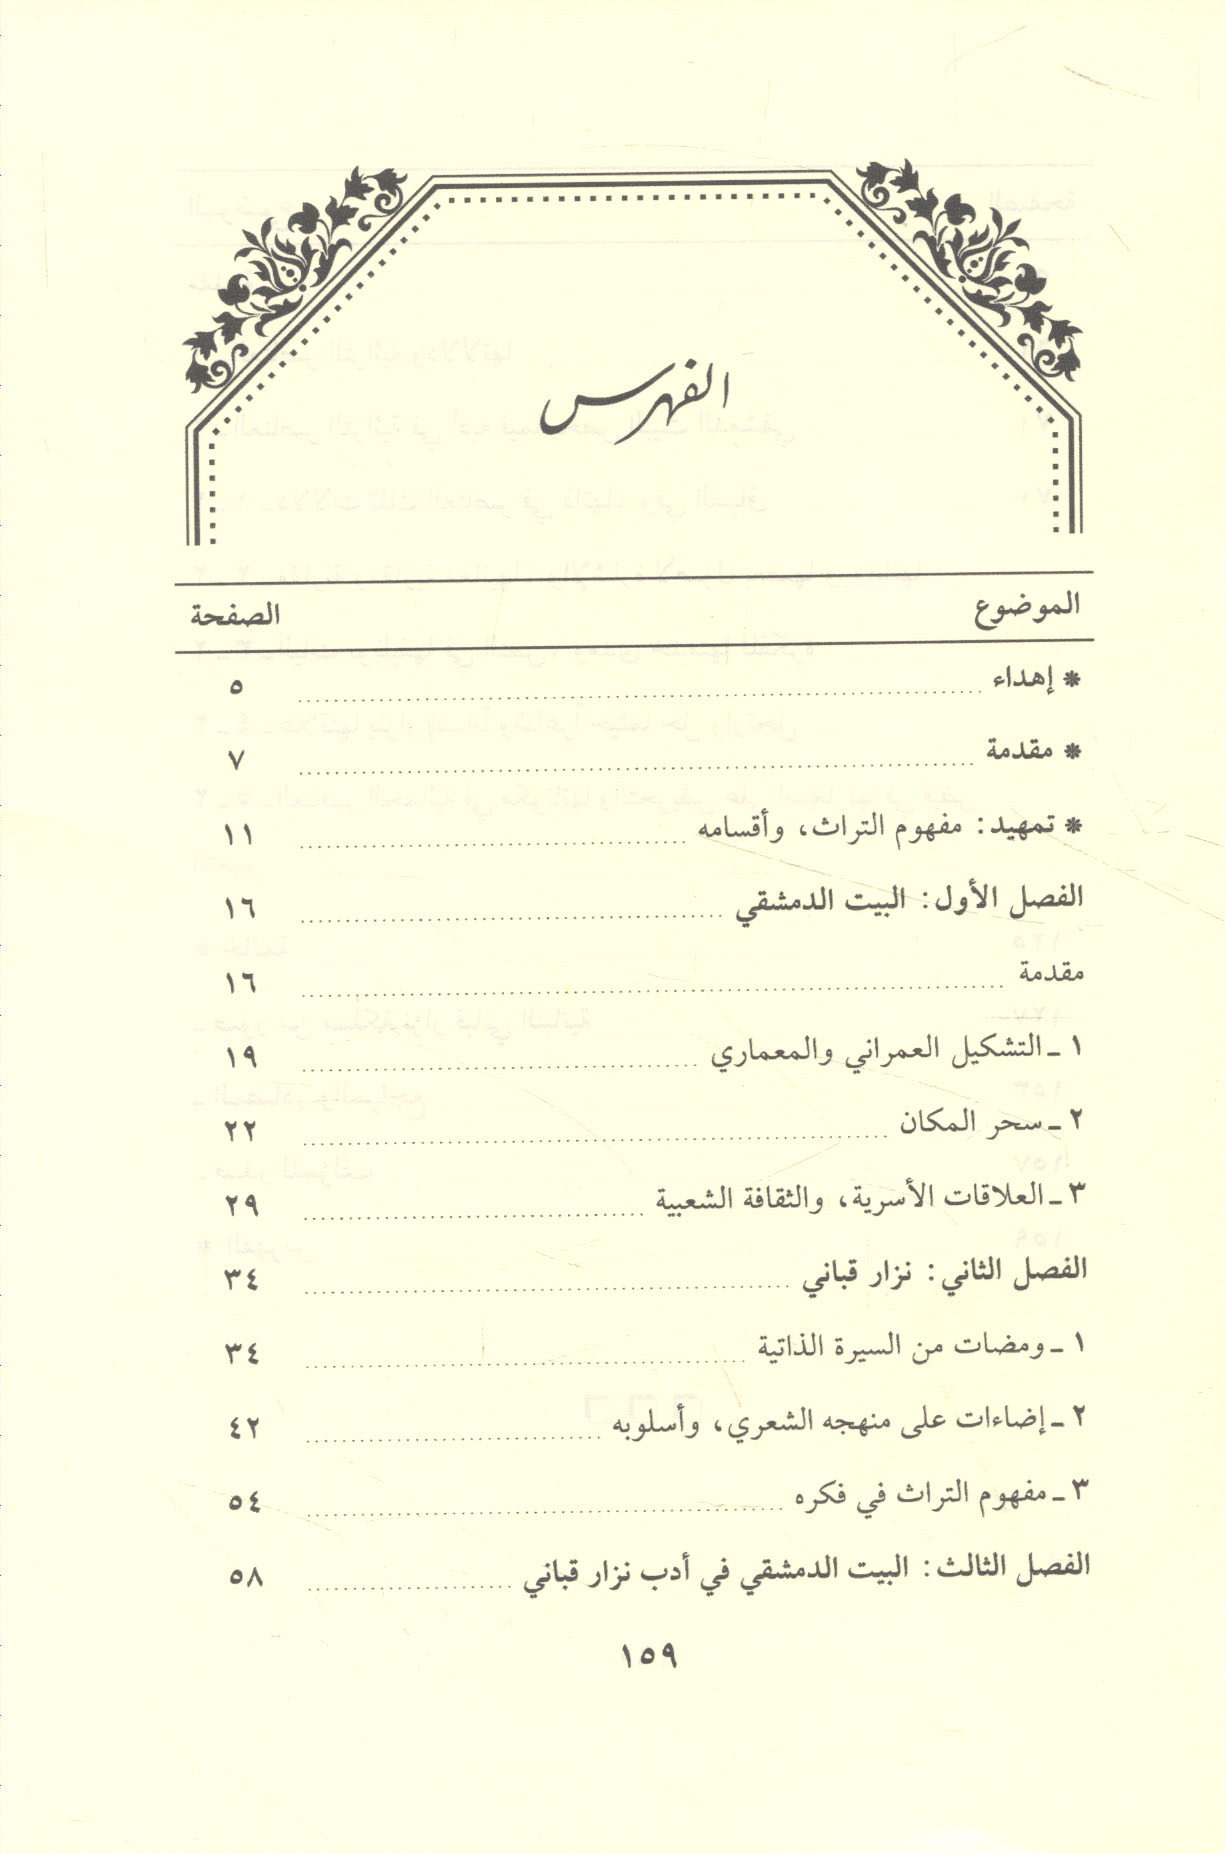 الفهرس
الموضوع الصفحة
* إهداء ... ٥
* مقدمة ... ٧
* تمهيد: مفهوم التراث، وأقسامه ... ١١
الفصل الأول: البيت الدمشقي ... ١٦
مقدمة ... ١٦
١ ـ التشكيل العمراني والمعماري ... ١٩
٢ ـ سحر المكان ... ٢٢
٣ ـ العلاقات الأسرية، والثقافة الشعبية ... ٢٩
الفصل الثاني: نزار قباني ... ٣٤
١ ـ ومضات من السيرة الذاتية ... ٣٤
٢ ـ إضاءات على منهجه الشعري، وأسلوبه ... ٤٢
٣ ـ مفهوم التراث في فكره ... ٥٤
الفصل الثالث: البيت الدمشقي في أدب نزار قباني ... ٥٨
١٥٩